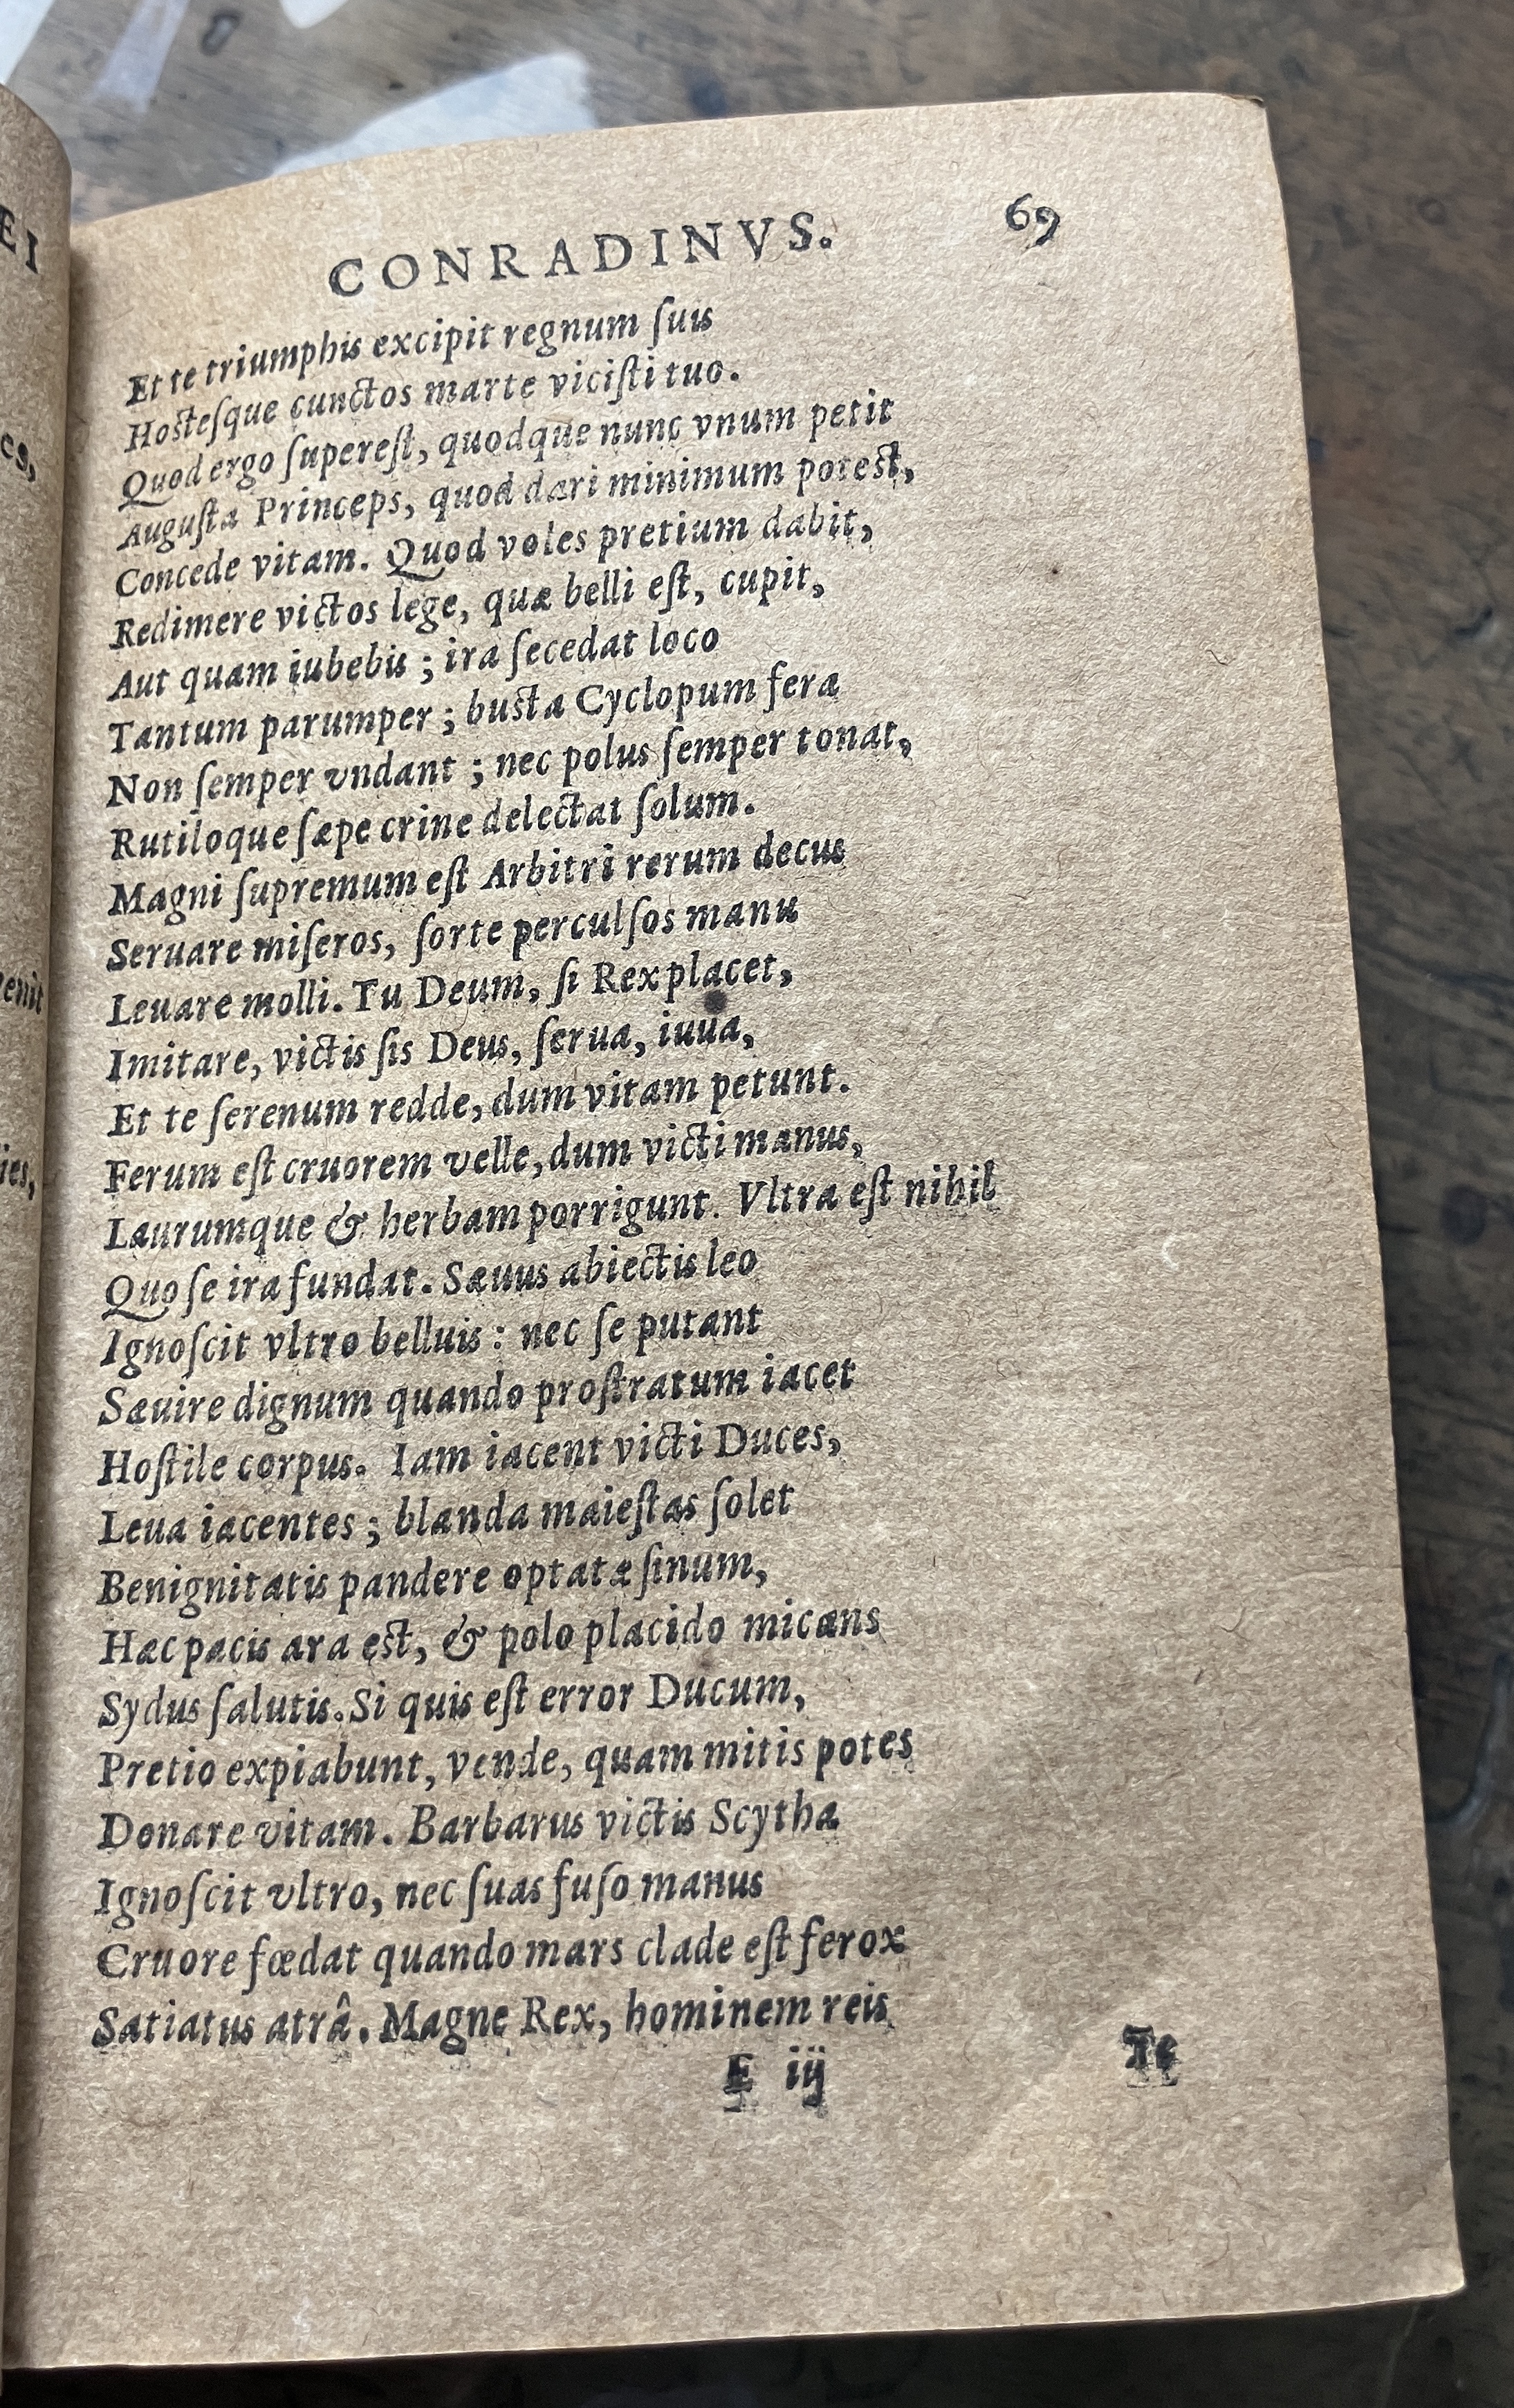 CONRADINVS. 69
Et te triumphis excipit regnum ſuis
Hosteſque cunctos marte viciſti tuo.
Quod ergo ſupereſt, quodque nunc vnum petit
Auguſta Princeps, quod dari minimum potest,
Concede vitam. Quod voles pretium dabit,
Redimere victos lege, quæ belli eſt, cupit,
Aut quam iubebis ; ira ſecedat loco
Tantum parumper ; busta Cyclopum fera
Non ſemper vndant ; nec polus ſemper tonat,
Rutiloque ſæpe crine delectat ſolum.
Magni ſupremum eſt Arbitri rerum decus
Seruare miſeros, ſorte perculſos manu
Leuare molli. Tu Deum, ſi Rex placet,
Imitare, victis ſis Deus, ſerua, iuua,
Et te ſerenum redde, dum vitam petunt.
Ferum eſt cruorem velle, dum victi manus,
Laurumque & herbam porrigunt. Vltra eſt nihil
Quo ſe ira fundat. Sæuus abiectis leo
Ignoſcit vltro belluis : nec ſe putant
Sæuire dignum quando proſtratum iacet
Hoſtile corpus. Iam iacent victi Duces,
Leua iacentes ; blanda maieſtas ſolet
Benignitatis pandere optatæ ſinum,
Hæc pacis ara est, & polo placido micans
Sydus ſalutis. Si quis eſt error Ducum,
Pretio expiabunt, vende, quam mitis potes
Donare vitam. Barbarus victis Scytha
Ignoſcit vltro, nec ſuas fuſo manus
Cruore fœdat quando mars clade eſt ferox
Satiatus atrâ. Magne Rex, hominem reis
E iij Te